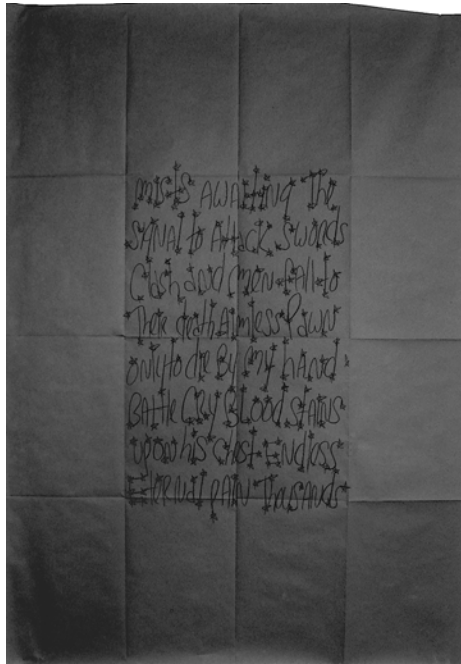 mists AwAiting The
SigNAl to AttAck Swords
Clash and men fall to
There death Aimless Pawn
only to die By my hand
BAttle Cry Blood stains
upon his Chest Endless
EterNal pAiN Thousands